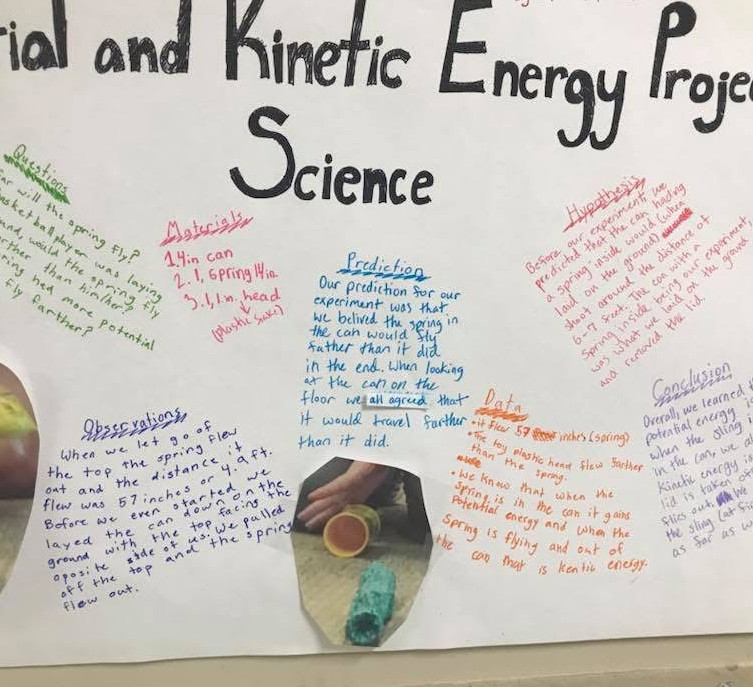 ial and Kinetic Energy Projec
Science
Questions
far will the spring fly?
basketball player was laying
would the spring fly
farther than him/her?
spring had more potential
fly farther?
Materials
1.4in can
2.1, spring 14in.
3.1, 1in. head
(plastic snake)
Prediction
Our prediction for our
experiment was that
we belived the spring in
the can would fly
father than it did
in the end. When looking
at the can on the
floor we all agreed that
it would travel farther
than it did.
Hypothesis
Before our experiment, we
predicted that the can having
a spring inside would (when
laid on the ground)
shoot around the distance of
6-7 feet. The can with a
spring inside being our experiment,
was what we laid on the ground
and removed the lid.
Observations
When we let go of
the top the spring flew
out and the distance it
flew was 57 inches or 4.9ft.
Before we even started we
layed the can down on the
ground with the top facing the
oposite side of us. We pulled
off the top and the spring
flew out.
Data
• it flew 57 inches (spring)
• The toy plastic head flew farther
than the spring.
• We know that when the
spring is in the can it gains
Potential energy and when the
spring is flying and out of
the can that is kentic energy.
Conclusion
Overall, we learned
potential energy is
when the sling i
in the can, we
Kinetic energy is
lid is taken o
flies out.
the sling (at f
as far as